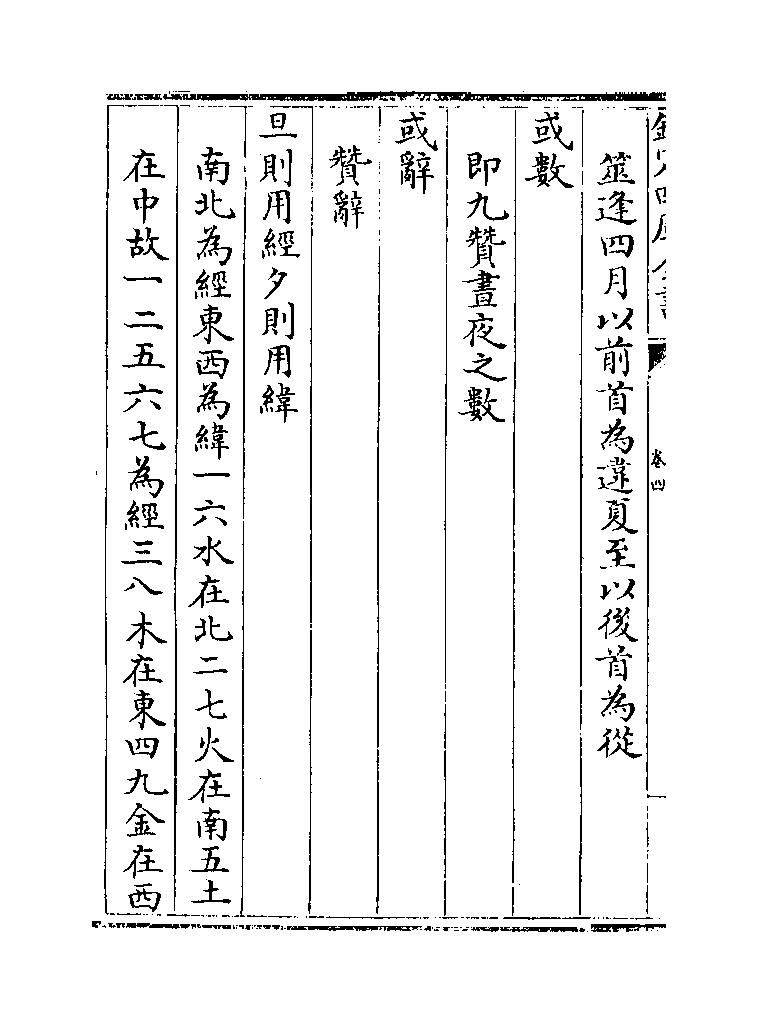 欽定四庫全書
卷四
筮逢四月以前首為違夏至以後首為從
或數
即九贊晝夜之數
或辭
贊辭
旦則用經夕則用緯
南北為經東西為緯一六水在北二七火在南五土
在中故一二五六七為經三八木在東四九金在西